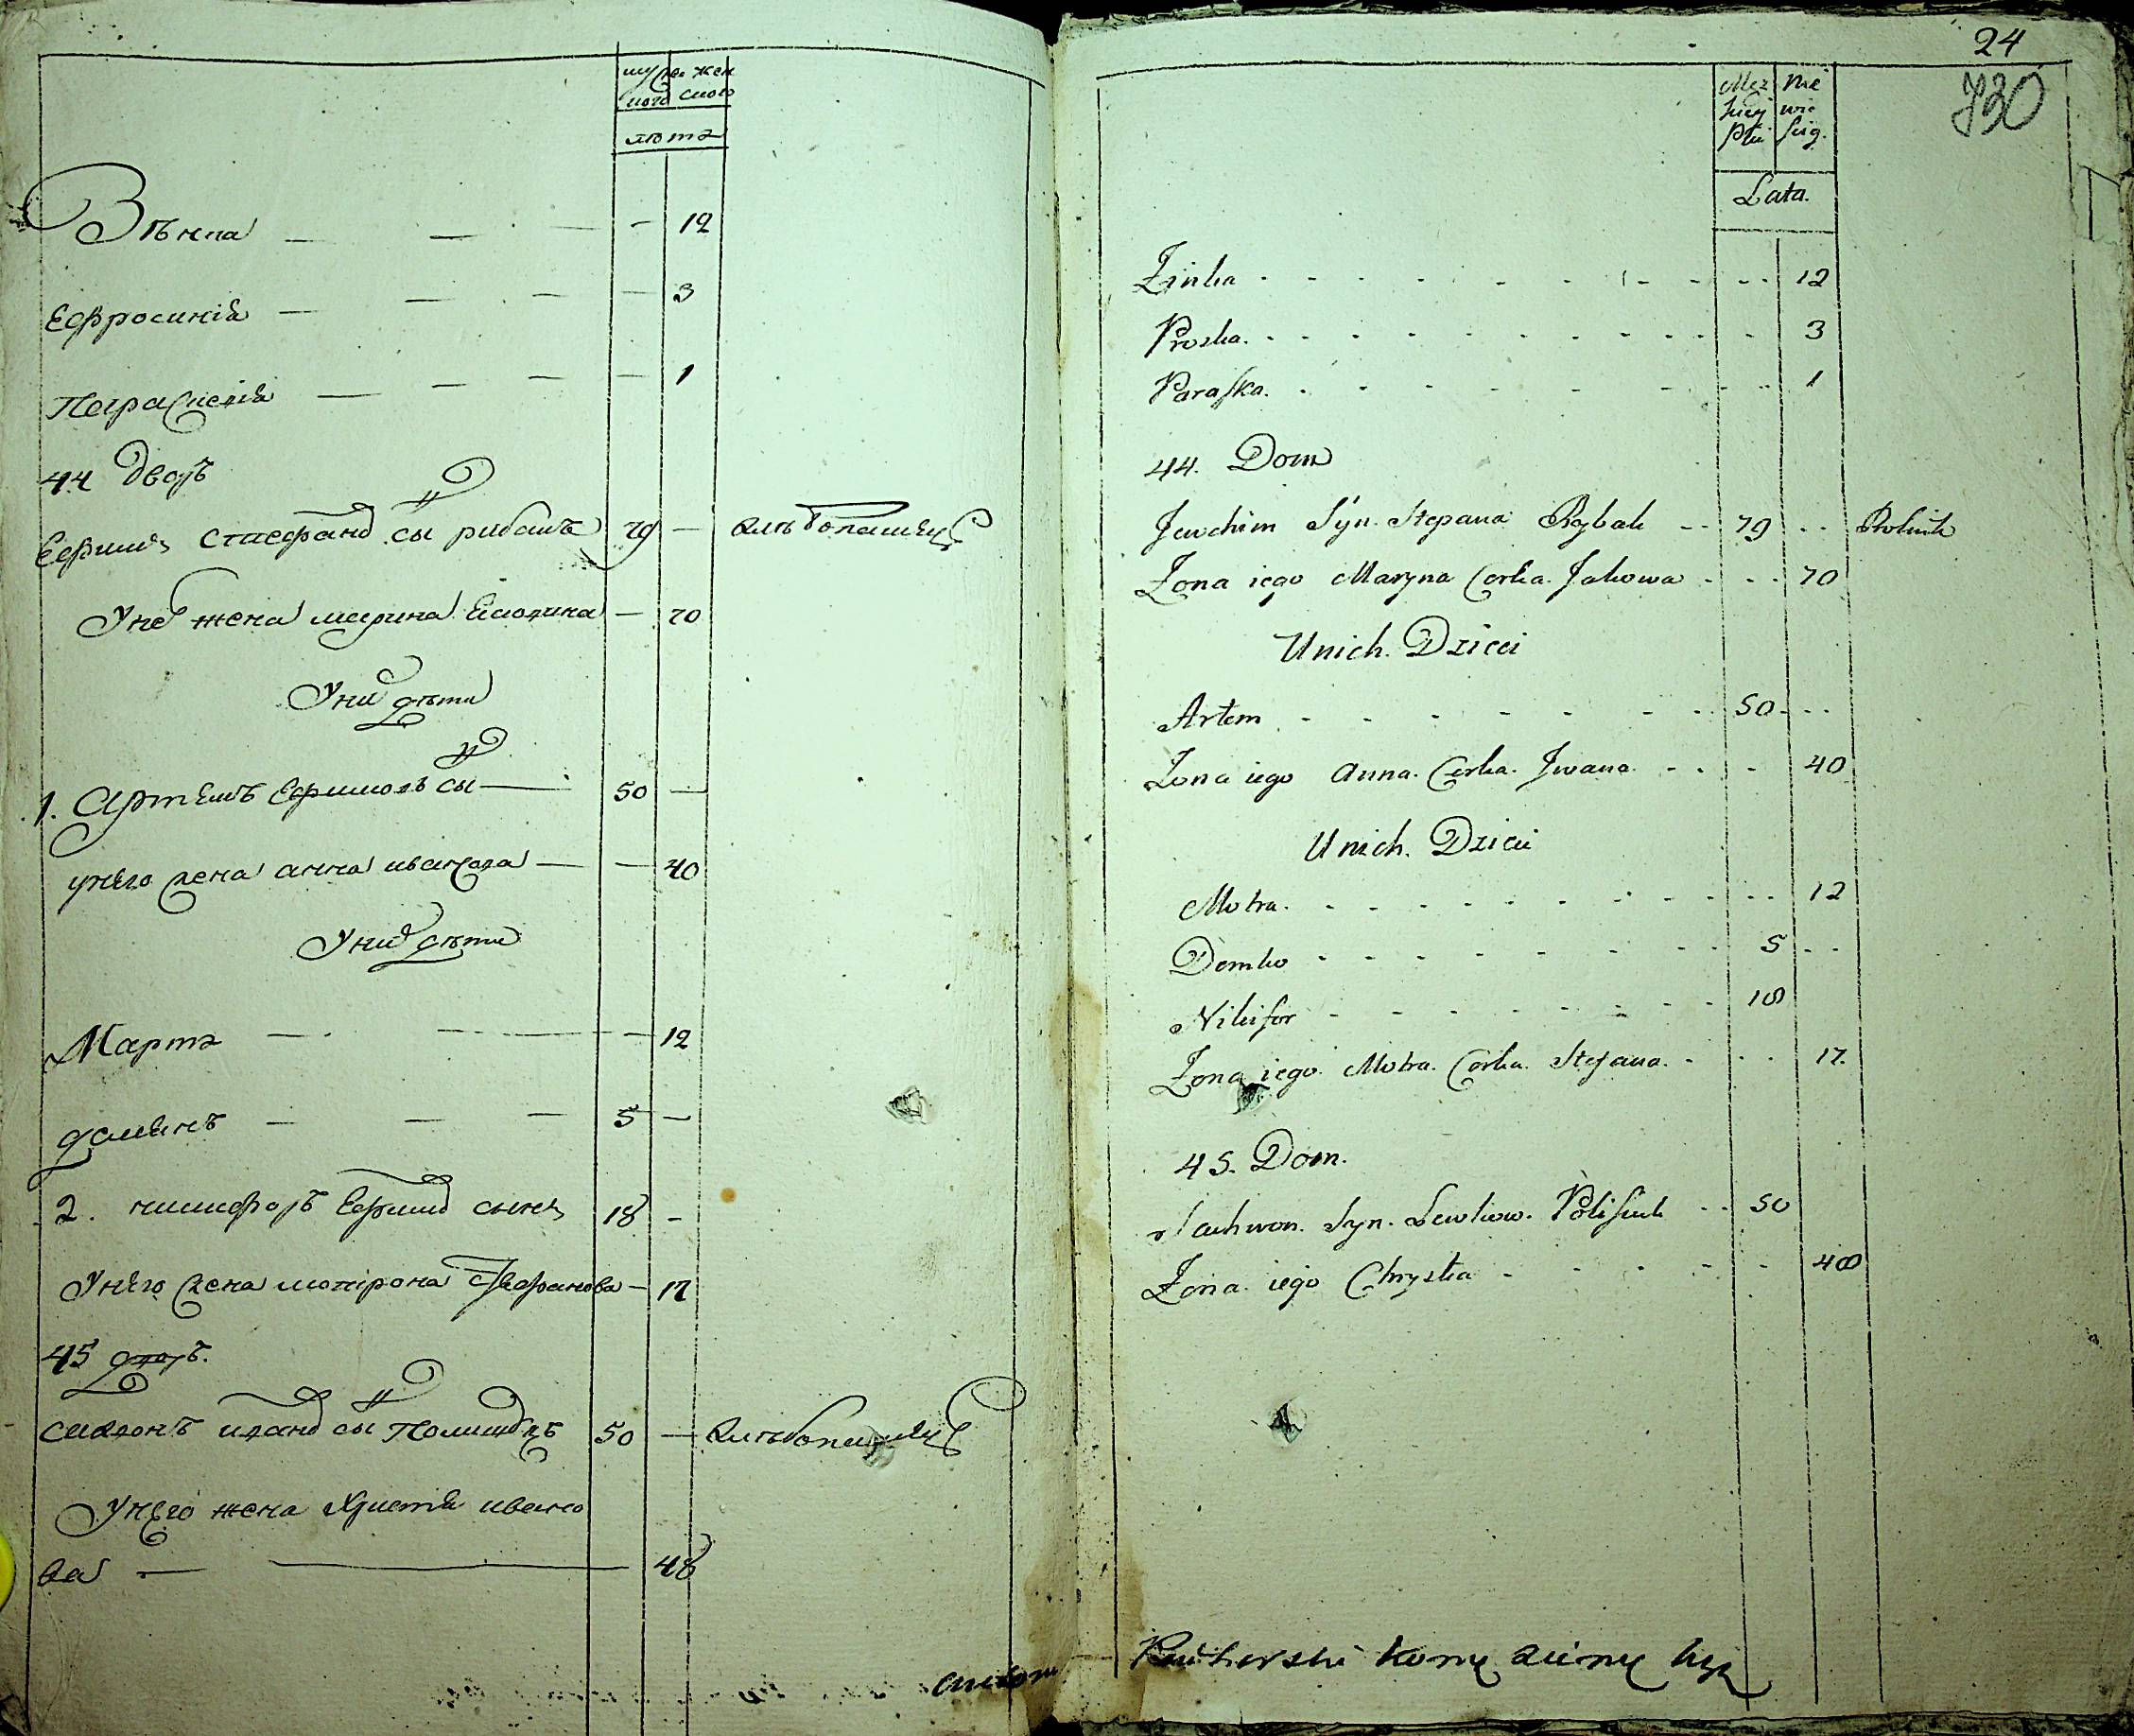 муже жен
ского ского
лѣта
Зѣнка — — — — 12
Ефросиніа — — — — 3
Параскевіа — — — — 1
44 дворъ
Ефимъ Стефанов сы рибакъ 79 — хлѣбопашецъ
У не жена Марина — 70
У них дѣти
1. Артемъ Ефимовъ сы — 50 —
у него жена анна иванова — — 40
У них дѣти
Марта — — — 12
Даменъ — — — 5 —
2. никифоръ Ефимов сынъ 18 —
У него жена мотрона Стефанова — 17
45 дворъ.
сы Полищукъ 50 — хлѣбопашецъ
У него жена Христіа ивано
ва — — 48
24
730
Męz Nie
kiey wie
Płci scig.
Lata.
Zinka - - - - - - - - - - 12
Proska. - - - - - - - - - - 3
Paraska. - - - - - - - - - 1
44. Dom
Jewchim Syn Stepana Rybak - - 79 - - Rolnik
Zona iego Maryna Corka Jakowa - - - 70
Unich. Dzieci
Artem - - - - - - - - 50 - - -
Zona iego Anna. Corka. Iwana - - - - 40
Unich. Dzieci
Motra. - - - - - - - - - - 12
Demko - - - - - - - - 5 - -
Nikifor - - - - - - - 18
Zona iego Motra. Corka. Stefana. - - - 17.
45. Dom.
Syn. Poliszuk - - 50
Zona iego Chrystia - - - - - - 48